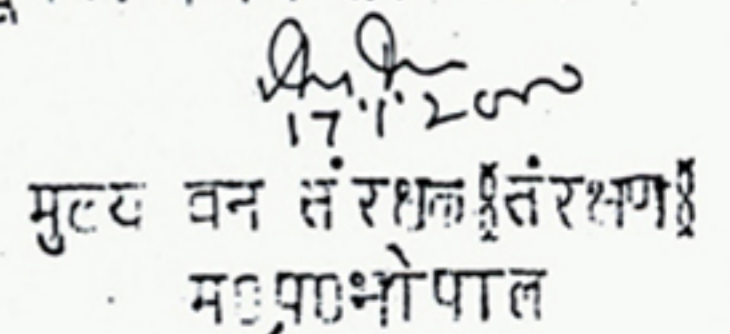 17.1.2000
मुख्य वन संरक्षक§संरक्षण§
म0प्र0भोपाल